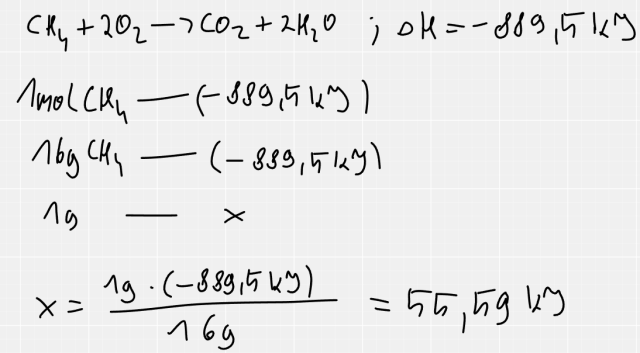 CH₄ + 2O₂ → CO₂ + 2H₂O ; ΔH = -889,5 kJ
1mol CH₄ — (-889,5 kJ)
16g CH₄ — (-889,5 kJ)
1g — x
x = 1g · (-889,5 kJ) / 16g = 55,59 kJ